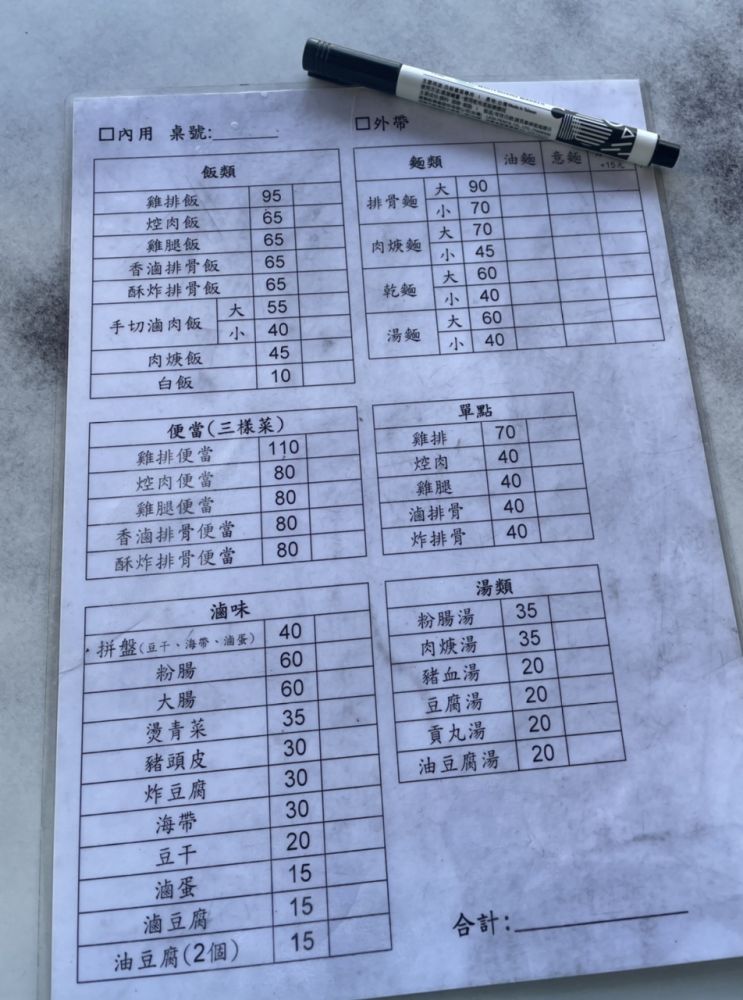 □內用 桌號:______
□外帶
飯類
雞排飯 95
焢肉飯 65
雞腿飯 65
香滷排骨飯 65
酥炸排骨飯 65
手切滷肉飯 大 55
小 40
肉焿飯 45
白飯 10
麵類 油麵 意麵
+15元
排骨麵 大 90
小 70
肉焿麵 大 70
小 45
乾麵 大 60
小 40
湯麵 大 60
小 40
便當(三樣菜)
雞排便當 110
焢肉便當 80
雞腿便當 80
香滷排骨便當 80
酥炸排骨便當 80
單點
雞排 70
焢肉 40
雞腿 40
滷排骨 40
炸排骨 40
滷味
拼盤(豆干、海帶、滷蛋) 40
粉腸 60
大腸 60
燙青菜 35
豬頭皮 30
炸豆腐 30
海帶 30
豆干 20
滷蛋 15
滷豆腐 15
油豆腐(2個) 15
湯類
粉腸湯 35
肉焿湯 35
豬血湯 20
豆腐湯 20
貢丸湯 20
油豆腐湯 20
合計:__________